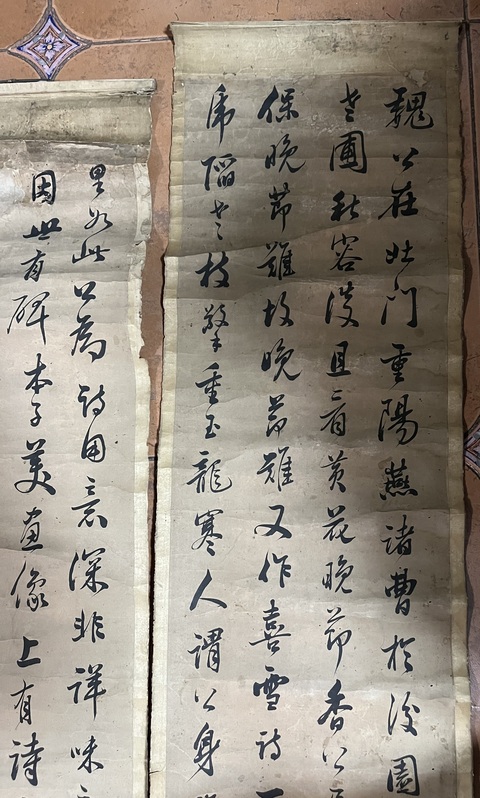 魏公在北門重陽燕諸曹於後園
老圃秋容淡且看黃花晚節香公
保晚節難故晚節難又作喜雪詩
虎陷老枝擎重玉龍寒人謂公身
如此公為詩用意深非詳味
因此有碑本子美畫像上有詩